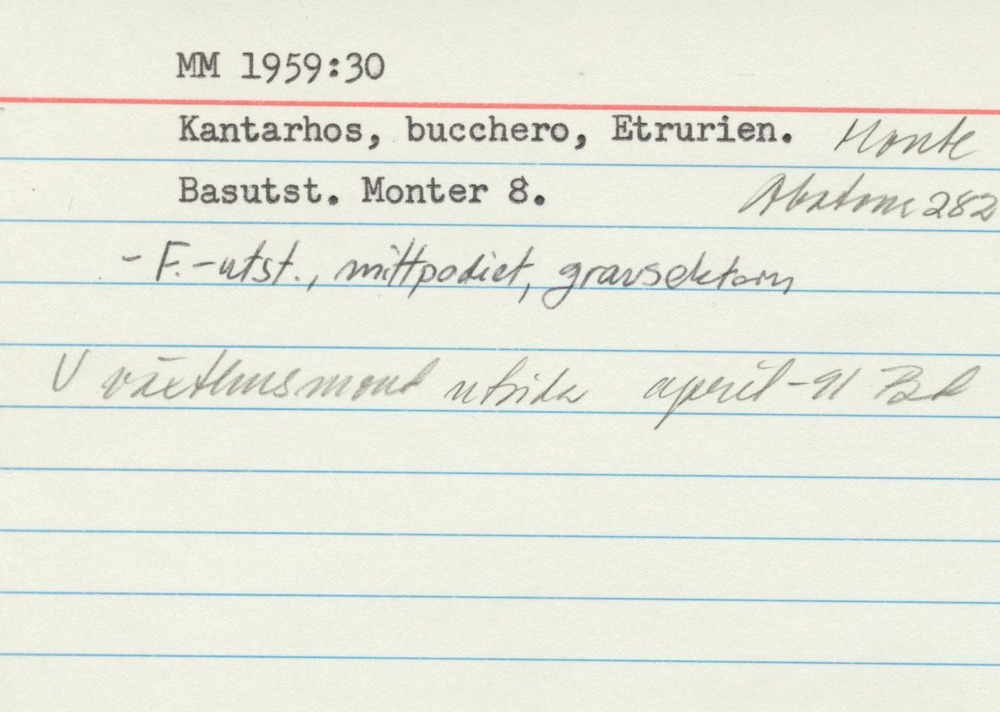 MM 1959:30
Kantarhos, bucchero, Etrurien. Monte
Basutst. Monter 8. Abatone 282
- F.-utst., mittpodiet, gravsektorn
V växthusmont utsida april -91